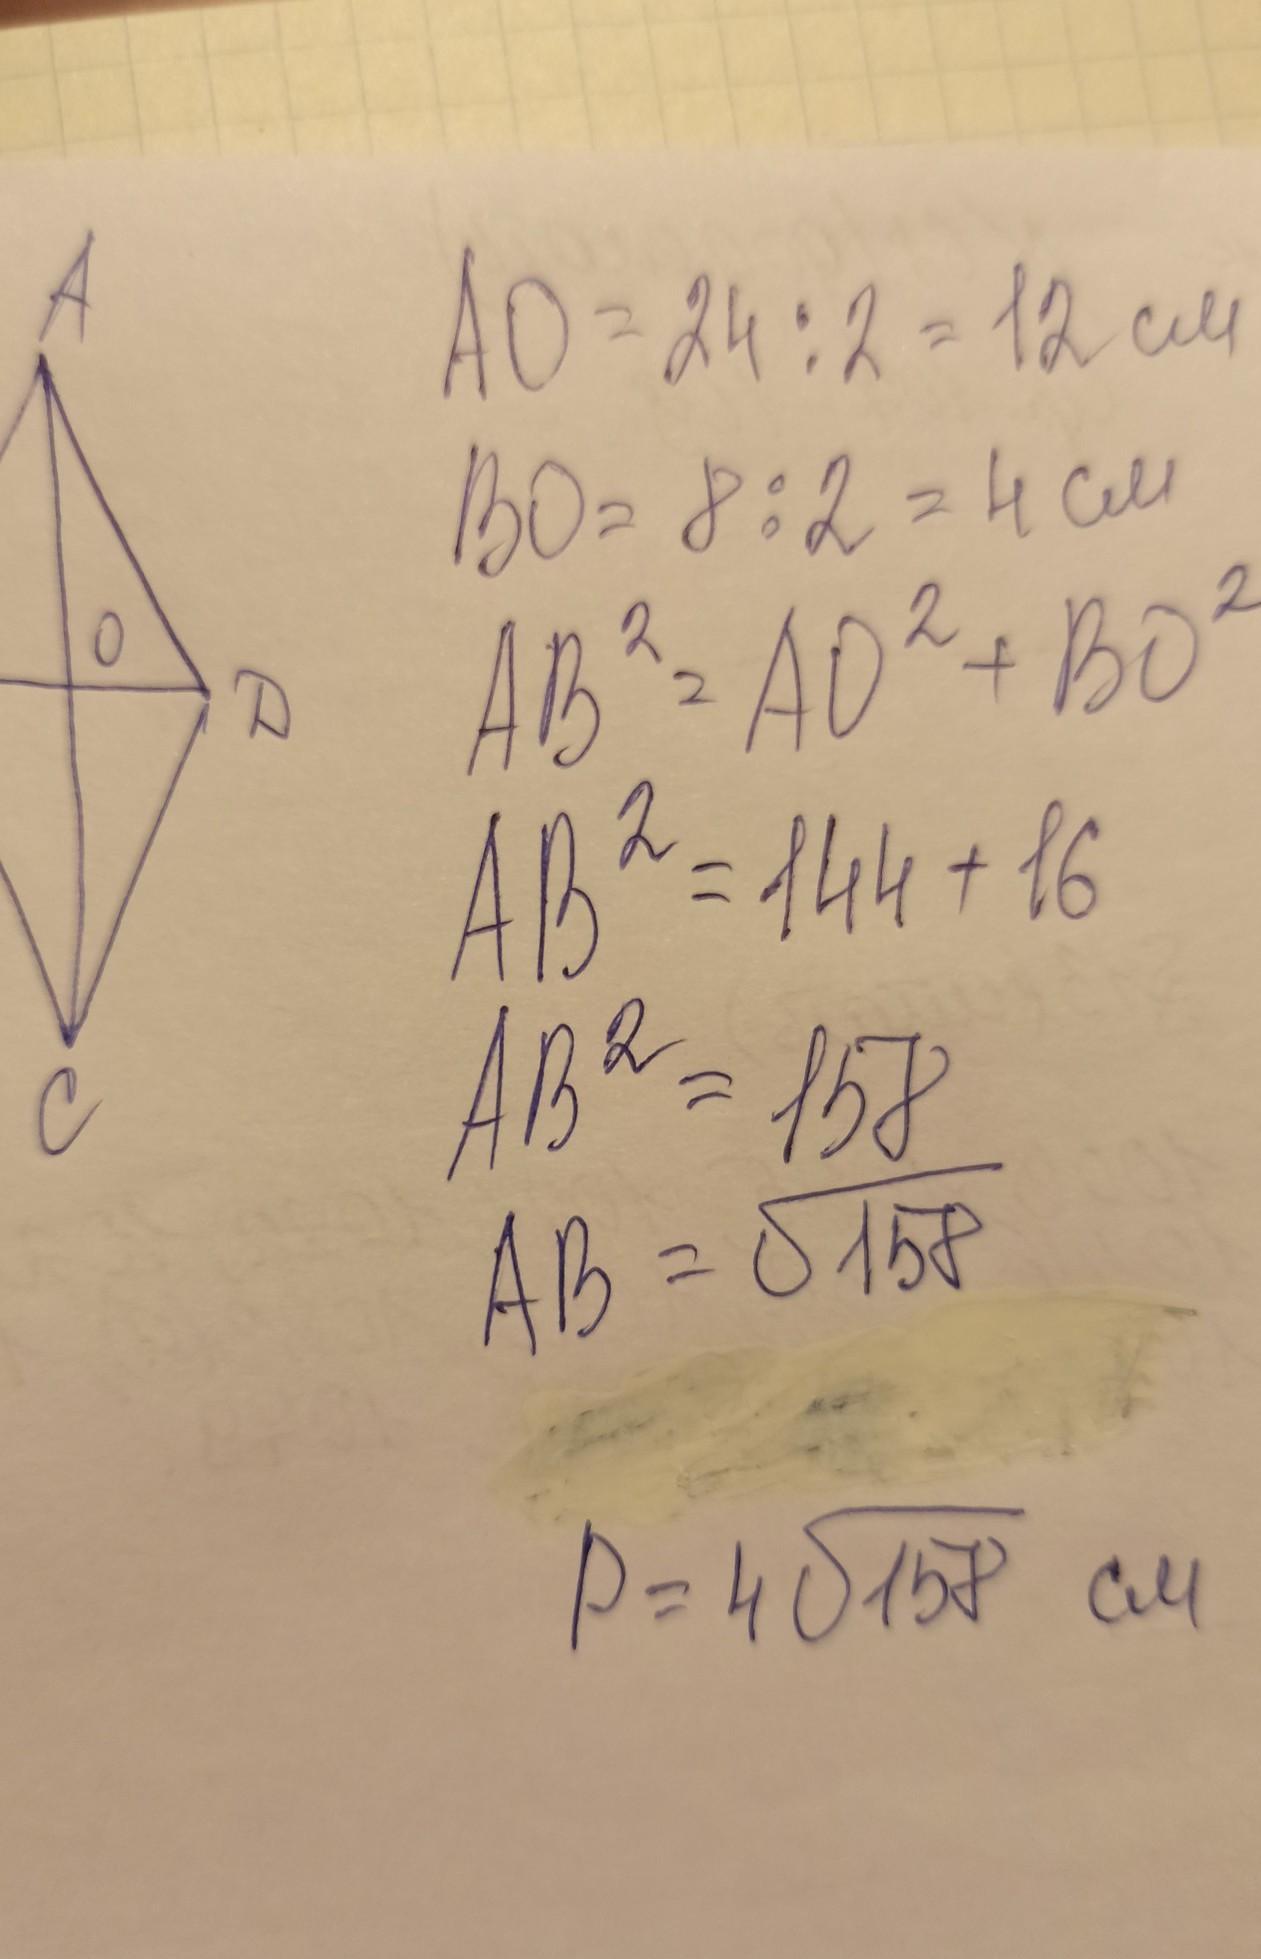 A
O
D
C
AO = 24 : 2 = 12 см
BO = 8 : 2 = 4 см
AB² = AO² + BO²
AB² = 144 + 16
AB² = 158
AB = √158
P = 4√158 см